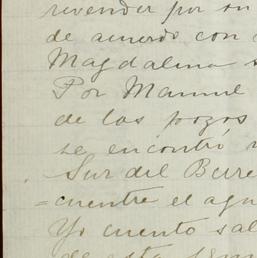 revender por su
de acuerdo con
Magdalena
Por Manuel
de los pozos
se encontró
Sur del Burre
= cuentre el agu
Yo cuento sal
de esta sema